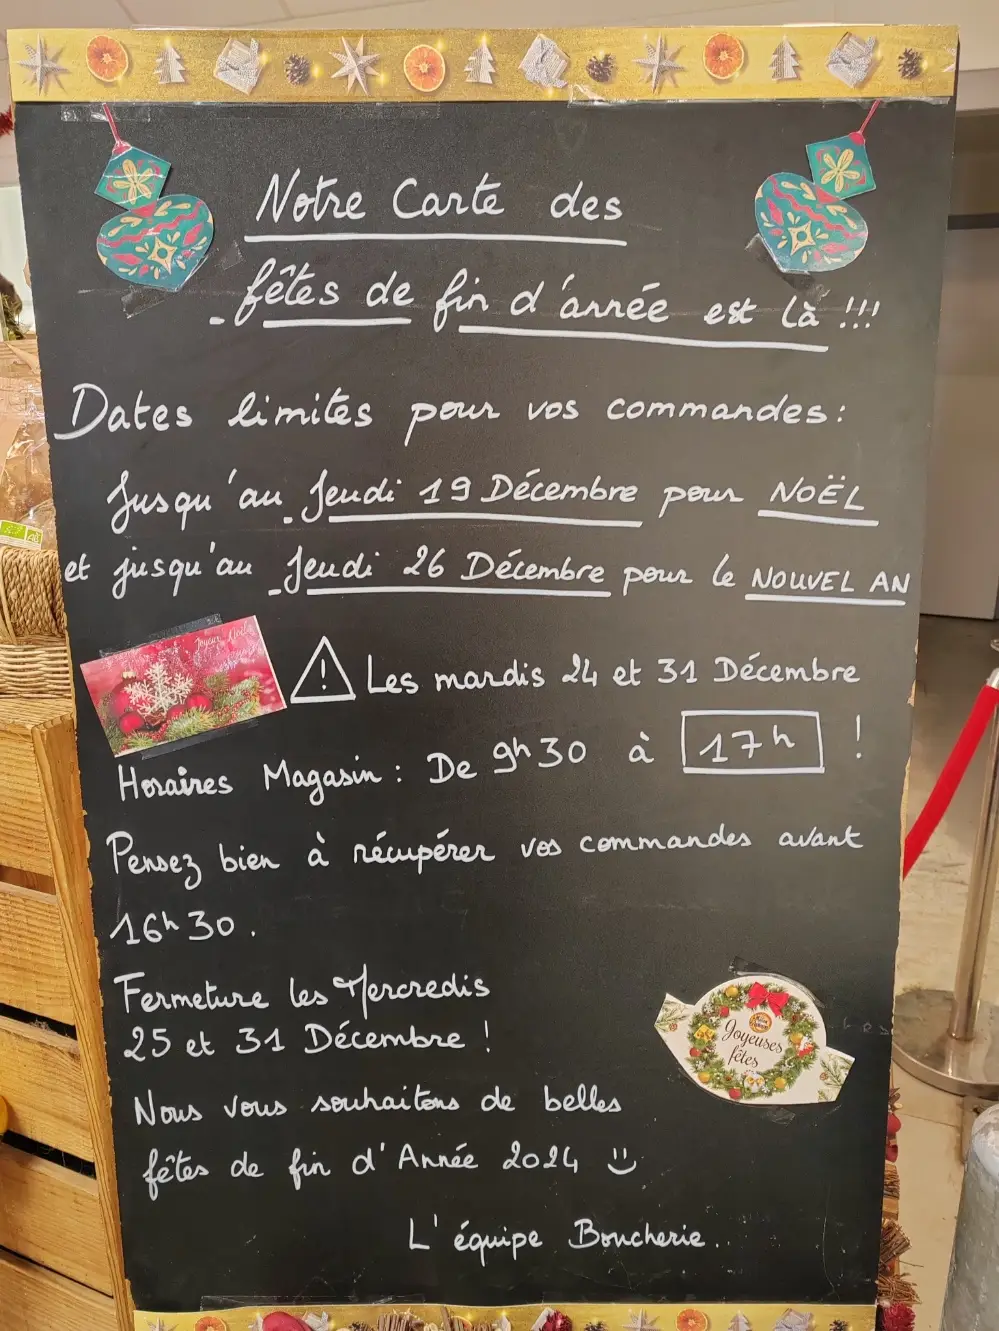 Notre Carte des
fêtes de fin d'année est là !!!
Dates limites pour vos commandes :
Jusqu'au Jeudi 19 Décembre pour NOËL
et jusqu'au Jeudi 26 Décembre pour le NOUVEL AN
Joyeux Noël
Les mardis 24 et 31 Décembre
Horaires Magasin : De 9h30 à 17h !
Pensez bien à récupérer vos commandes avant
16h30.
Fermeture les Mercredis
25 et 31 Décembre !
Joyeuses
fêtes
Nous vous souhaitons de belles
fêtes de fin d'Année 2024
L'équipe Boucherie.